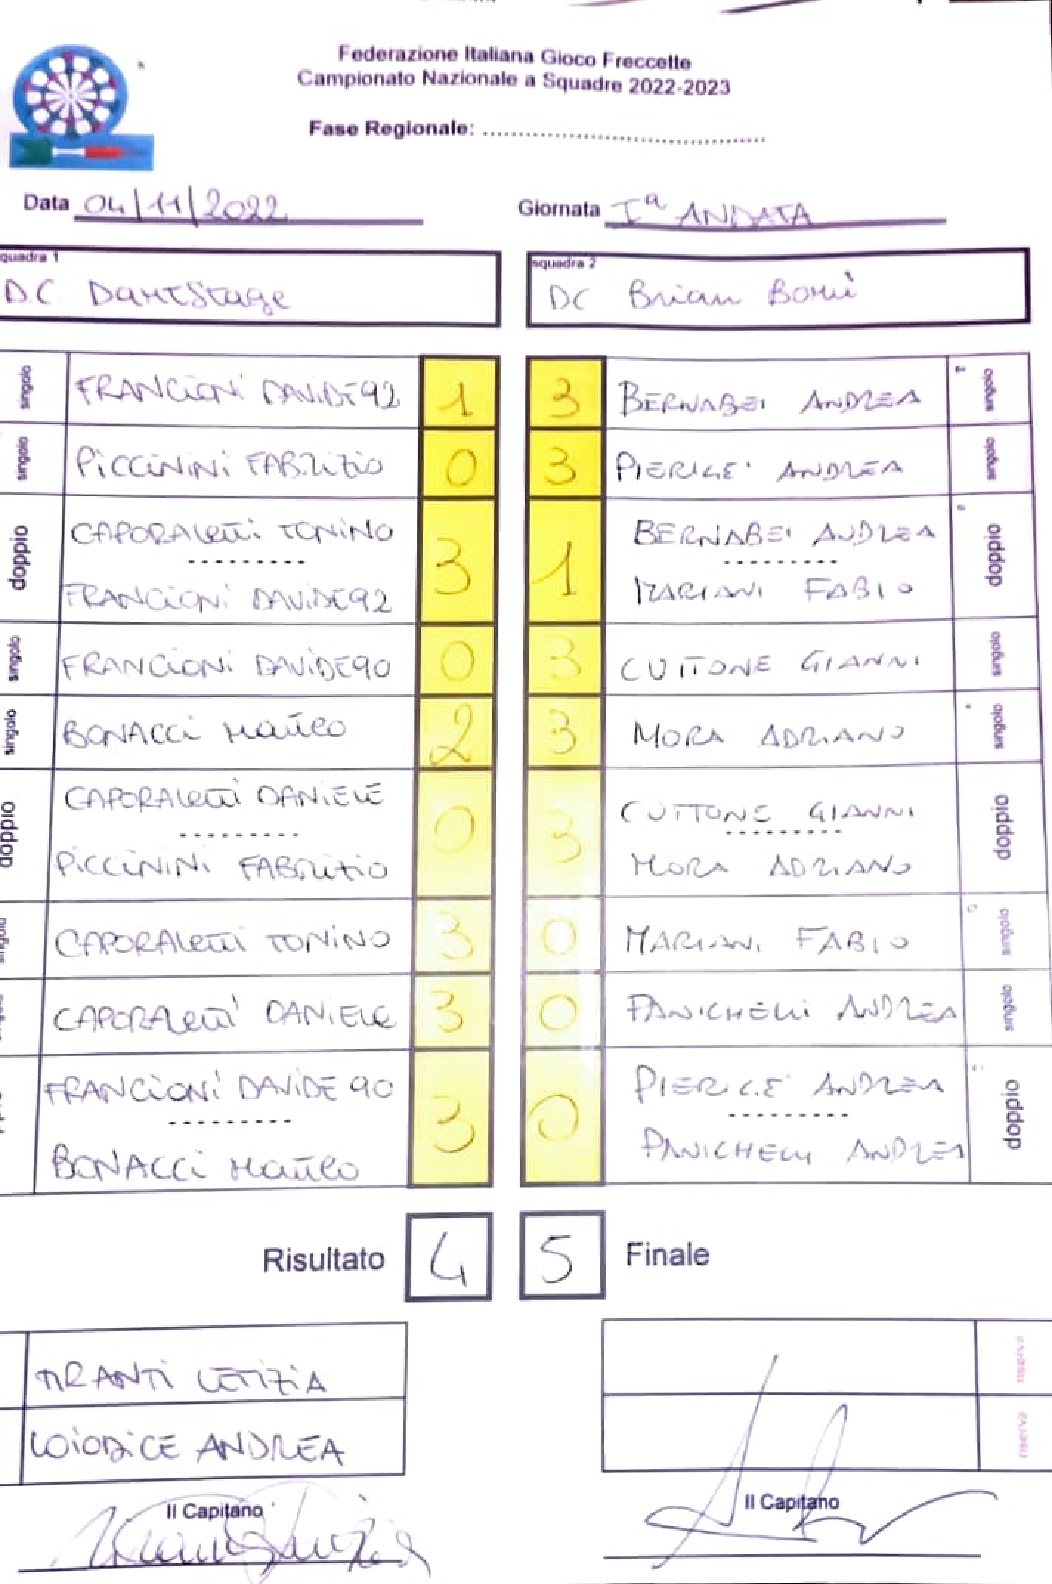 Federazione Italiana Gioco Freccette
Campionato Nazionale a Squadre 2022-2023
Fase Regionale: ........................................
Data 04/11/2022 Giornata Iª ANDATA
squadra 1 squadra 2
D.C. DartStage DC Brian Bomi
singolo FRANCIONI DAVIDE 92 1 3 BERNABEI ANDREA singolo
singolo PICCININI FABRIZIO 0 3 PIERIGE' ANDREA singolo
doppio CAPORALETTI TONINO 3 1 BERNABEI ANDREA doppio
FRANCIONI DAVIDE 92 MARIANI FABIO
singolo FRANCIONI DAVIDE 90 0 3 CUTTONE GIANNI singolo
singolo BONACCI Matteo 2 3 MORA ADRIANO singolo
doppio CAPORALETTI DANIELE 0 3 CUTTONE GIANNI doppio
PICCININI FABRIZIO MORA ADRIANO
singolo CAPORALETTI TONINO 3 0 MARIANI FABIO singolo
CAPORALETTI DANIELE 3 0 PANICHELLI ANDREA singolo
FRANCIONI DAVIDE 90 3 0 PIERIGE' ANDREA doppio
BONACCI Matteo PANICHELLI ANDREA
Risultato 4 5 Finale
TIRANTI LETIZIA
LOIODICE ANDREA
Il Capitano Il Capitano